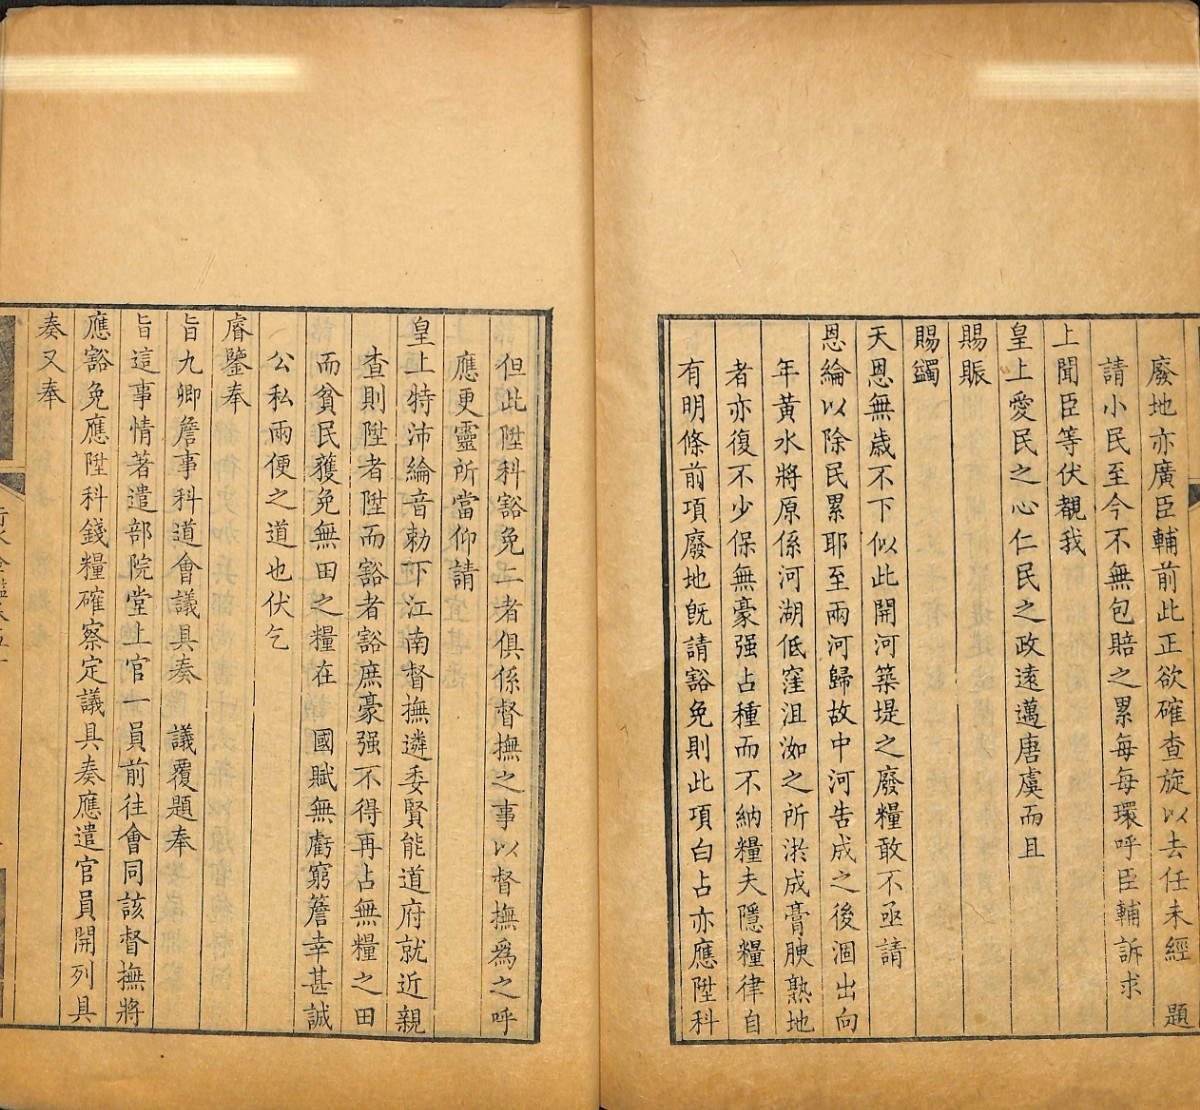 廢地亦廣臣輔前此正欲確查旋以去任未經　題
請小民至今不無包賠之累每每環呼臣輔訴求
上聞臣等伏覩我
皇上愛民之心仁民之政遠邁唐虞而且
賜賑
賜蠲
天恩無歲不下似此開河築堤之廢糧敢不亟請
恩綸以除民累耶至兩河歸故中河告成之後涸出向
年黃水將原係河湖低窪沮洳之所淤成膏腴熟地
者亦復不少保無豪强占種而不納糧夫隱糧律自
有明條前項廢地旣請豁免則此項白占亦應陞科
但此陞科豁免二者俱係督撫之事以督撫爲之呼
應更靈所當仰請
皇上特沛綸音勅下江南督撫遴委賢能道府就近親
查則陞者陞而豁者豁庶豪强不得再占無糧之田
而貧民獲免無田之糧在　國賦無虧窮簷幸甚誠
公私兩便之道也伏乞
睿鑒奉
旨九卿詹事科道會議具奏　議覆題奉
旨這事情著遣部院堂上官一員前往會同該督撫將
應豁免應陞科錢糧確察定議具奏應遣官員開列具
奏又奉